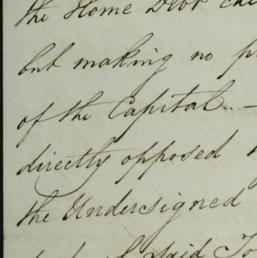 the Home Debt
but making no
of the Capital. -
directly opposed
the Undersigned
said